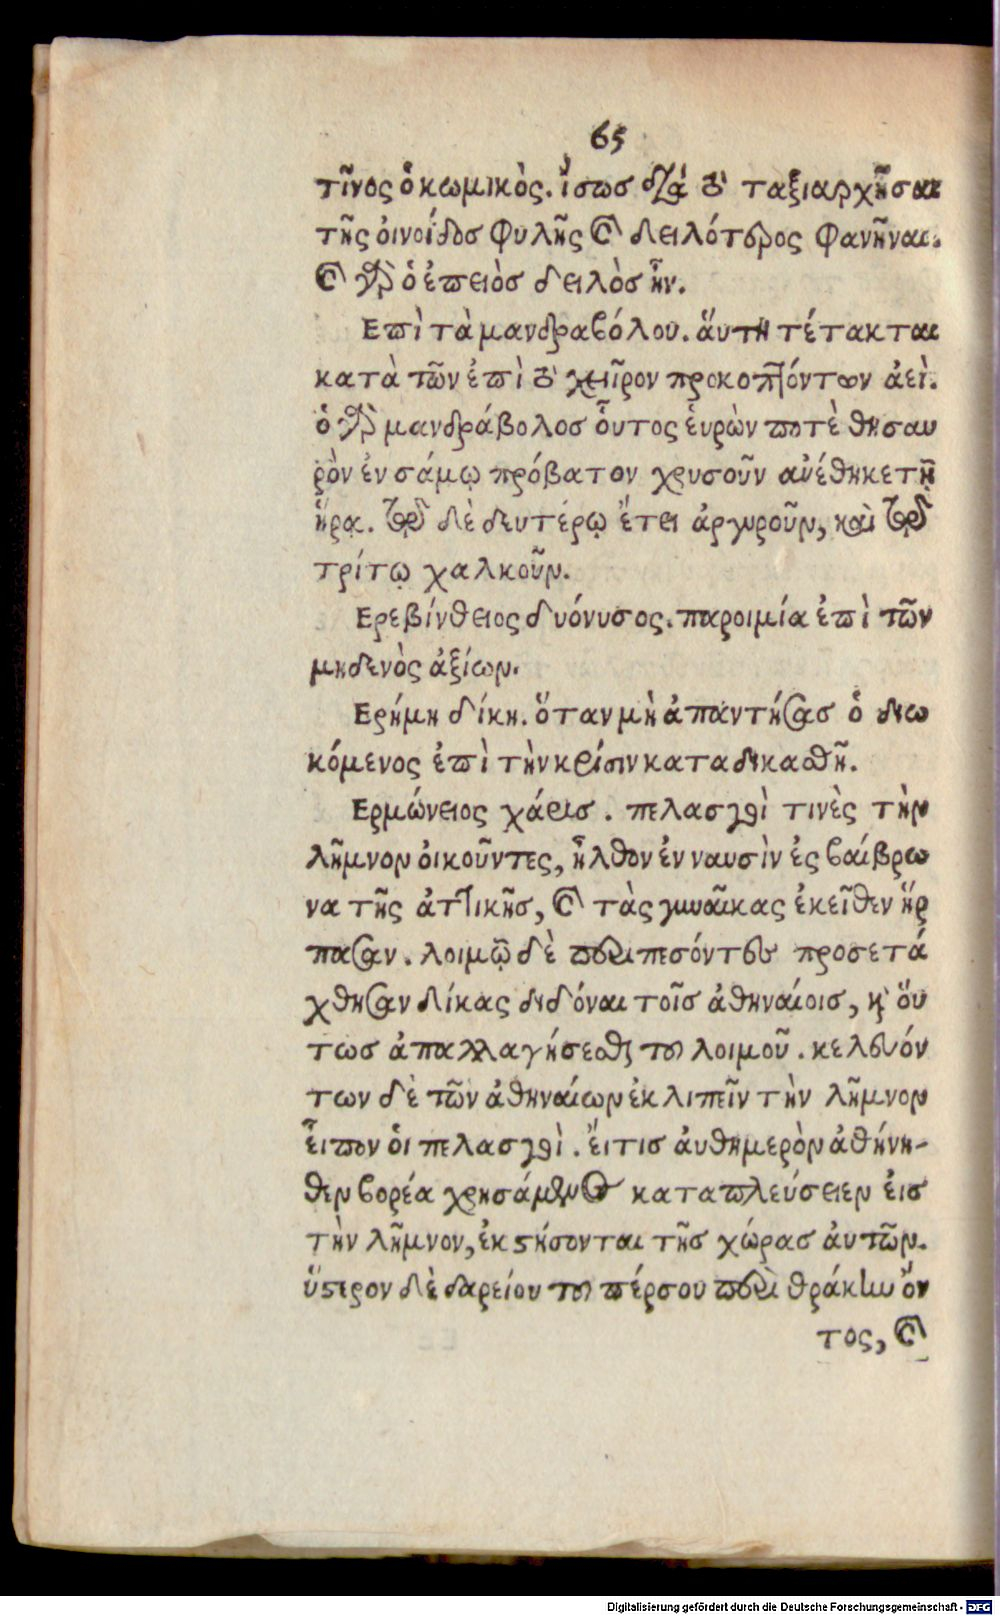 65
τῖνος ὁ κωμικὸς. ἴσως διὰ τὸ ταξιαρχῆσαι
τῆς ὀινοίδος φυλῆς καὶ δειλότερος φανῆναι.
καὶ γὰρ ὁ ἐπειὸς δειλὸς ἦν.
Επὶ τὰ μανδραβόλου. ἅυτη τέτακται
κατὰ τῶν ἐπὶ τὸ χεῖρον προκοπτόντων ἀεὶ.
ὁ γὰρ μανδράβολος ὗτος ἑυρὼν ποτὲ θησαυ
ρὸν ἐν σάμῳ πρόβατον χρυσοῦν ανέθηκε τῇ
ἥρᾳ. τῷ δὲ δευτέρῳ ἔτει ἀργυροῦν, καὶ τῷ
τρίτῳ χαλκοῦν.
Ερεβίνθειος δυόνυσος. παροιμία ἐπὶ τῶν
μηδενὸς ἀξίων.
Ερήμη δίκη. ὅταν μὴ ἀπαντήσας ὁ διω
κόμενος ἐπὶ τὴν κρίσιν καταδικασθῇ.
Ερμώνειος χάρις. πελασγοὶ τινὲς τὴν
λῆμνον ὀικοῦντες, ἦλθον ἐν ναυσὶν ἐς βαίβρω
να τῆς ἀττικῆς, καὶ τὰς γυναῖκας ἐκεῖθεν ἥρ
πασαν. λοιμῷ δὲ περιπεσόντες προσετά
χθησαν δίκας διδόναι τοῖς ἀθηναίοις, κὶ ὅυ
τως ἀπαλλαγήσεσθαι τοῦ λοιμοῦ. κελευόν
των δὲ τῶν ἀθηναίων ἐκλιπεῖν τὴν λῆμνον
εἶπον ὁι πελασγοὶ. ἔιτις ἀυθημερὸν ἀθήνη-
θεν βορέα χρησάμενος καταπλεύσειεν ἐις
τὴν λῆμνον, ἐκστήσονται τῆς χώρας ἀυτῶν.
ὕστερον δὲ δαρείου τοῦ πέρσου περὶ θράκην ὄν
τος, καὶ
Digitalisierung gefördert durch die Deutsche Forschungsgemeinschaft - DFG